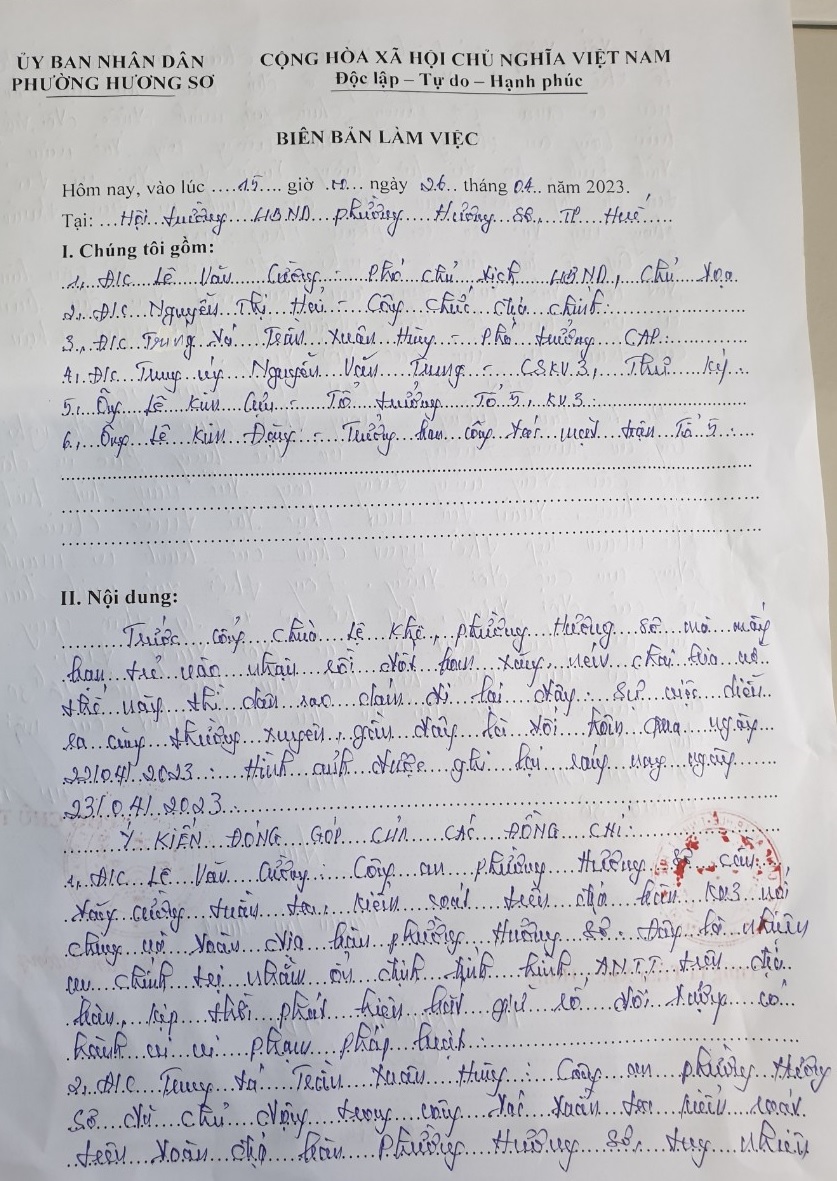 ỦY BAN NHÂN DÂN
PHƯỜNG HƯƠNG SƠ
CỘNG HÒA XÃ HỘI CHỦ NGHĨA VIỆT NAM
Độc lập – Tự do – Hạnh phúc
BIÊN BẢN LÀM VIỆC
Hôm nay, vào lúc ....15.... giờ ... ngày 26.. tháng 04.. năm 2023.
Tại: ...Hội trường UBND phường Hương Sơ, TP Huế
I. Chúng tôi gồm:
1, Đ/C Lê Văn Cường - Phó chủ tịch UBND, Chủ tọa.
2, Đ/C Nguyễn Thị Hải - Công chức địa chính.
3, Đ/C Trung tá Trần Xuân Hùng - Phó trưởng CAP.
4, Đ/C Trung úy Nguyễn Văn Trung - CSKV3, Thư ký.
5, Ông Lê Kim Cửu - Tổ trưởng Tổ 5, KV3.
6, Ông Lê Kim Đặng - Trưởng ban công tác mặt trận Tổ 5.
II. Nội dung:
Trước cổng chùa Lê Khê, phường Hương Sơ mà mấy
bạn trẻ vào nhậu rồi đốt xăng, ném chai bia
thế này thì dân sao dám đi lại đây. Sự việc diễn
ra cũng thường xuyên, gần đây là tối hôm qua ngày
22/04/2023. Hình ảnh được ghi lại sáng nay ngày
23/04/2023.
Ý KIẾN ĐÓNG GÓP CỦA CÁC ĐỒNG CHÍ:
1, Đ/C Lê Văn Cường: Công an phường Hương Sơ cần
tăng cường tuần tra, kiểm soát trên địa bàn KV3 nói
chung và toàn địa bàn phường Hương Sơ. Đây là nhiệm
vụ chính trị nhằm ổn định tình hình A.N.T.T trên địa
bàn, kịp thời phát hiện bắt giữ số đối tượng có
hành vi vi phạm pháp luật.
2, Đ/C Trung tá Trần Xuân Hùng: Công an phường Hương
Sơ đã chủ động trong công tác tuần tra kiểm soát
trên toàn địa bàn phường Hương Sơ, tuy nhiên